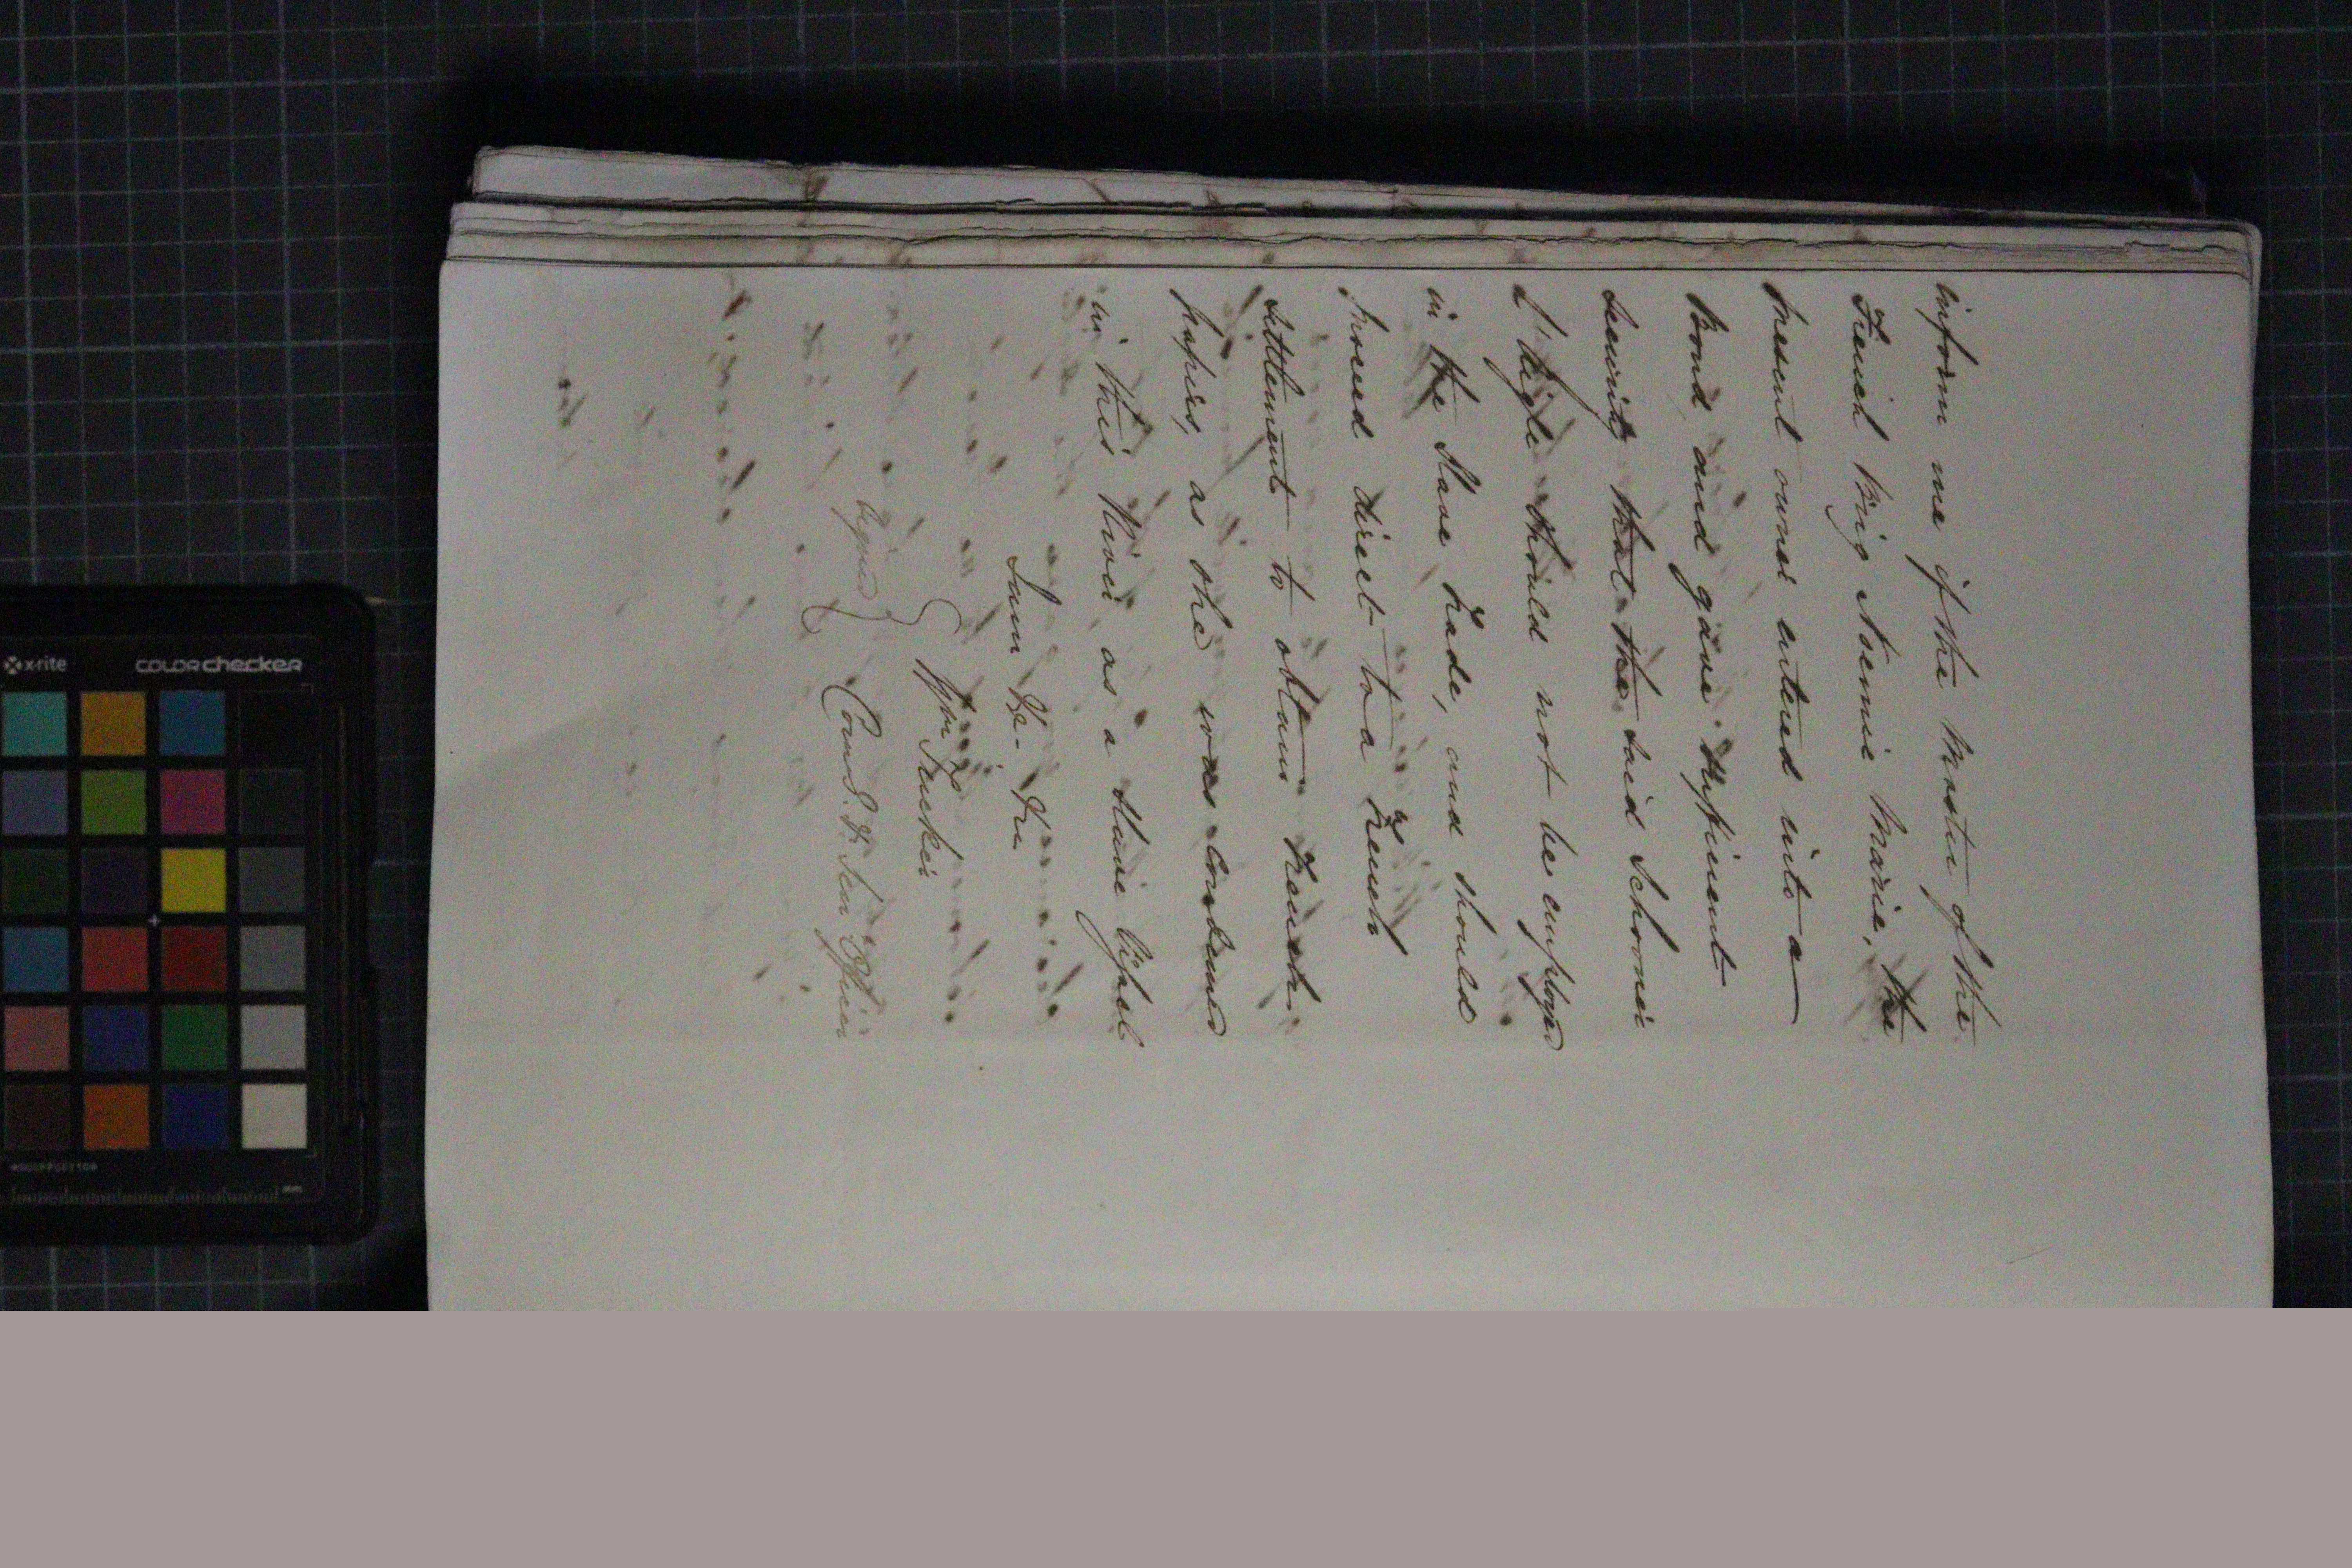 inform me if the Master of the
French Brig Noemie Marie, the
present owner entered into a
Bond and gave sufficient
Security that the said Schooner
L'Aigle should not be employed
in the Slave Trade, and should
proceed direct to a French
settlement to obtain French
papers, as she was Condemned
in this River as a Slave Vessel
I am &c. &c
Signed } Wm Tucker
Comr & Senr Officer
x-rite COLORchecker